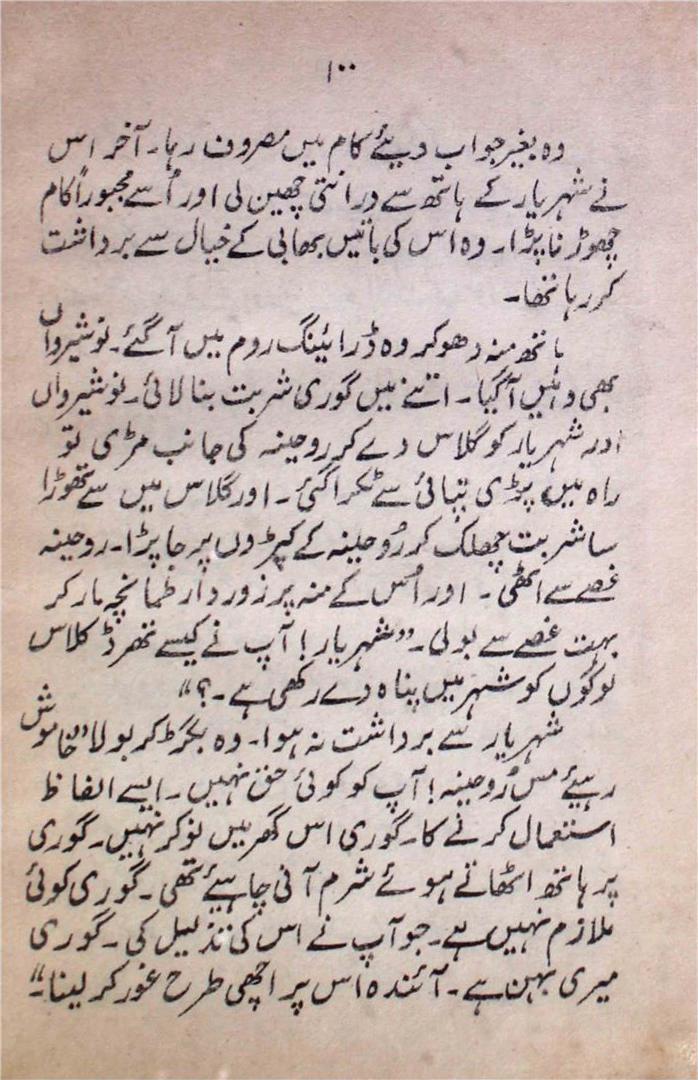 ۱۰۰
وہ بغیر جواب دیئے کام میں مصروف رہا۔ آخر اس
نے شہریار کے ہاتھ سے درانتی چھین لی اور اُسے مجبوراً کام
چھوڑنا پڑا۔ وہ اس کی باتیں بھابی کے خیال سے برداشت
کر رہا تھا۔
ہاتھ منہ دھو کر وہ ڈرائینگ روم میں آ گئے۔ نوشیرواں
بھی وہیں آ گیا۔ اتنے میں گوری شربت بنا لائی۔ نوشیرواں
اور شہریار کو گلاس دے کر روحینہ کی جانب مڑی تو
راہ میں پڑی تپائی سے ٹکرا گئی۔ اور گلاس میں سے تھوڑا
سا شربت چھلک کر رُوحینہ کے کپڑوں پر جا پڑا۔ روحینہ
غصے سے اٹھی۔ اور اُس کے منہ پر زور دار طمانچہ مار کر
بہت غصے سے بولی۔ ”شہریار! آپ نے کیسے تھرڈ کلاس
لوگوں کو شہر میں پناہ دے رکھی ہے۔؟“
شہریار سے برداشت نہ ہوا۔ وہ بگڑ کر بولا ”خاموش
رہیئے مس رُوحینہ! آپ کو کوئی حق نہیں۔ ایسے الفاظ
استعمال کرنے کا۔ گوری اس گھر میں نوکر نہیں۔ گوری
پر ہاتھ اٹھاتے ہوئے شرم آنی چاہیئے تھی۔ گوری کوئی
ملازم نہیں ہے۔ جو آپ نے اس کی تذلیل کی۔ گوری
میری بہن ہے۔ آئندہ اس پر اچھی طرح غور کر لینا۔“